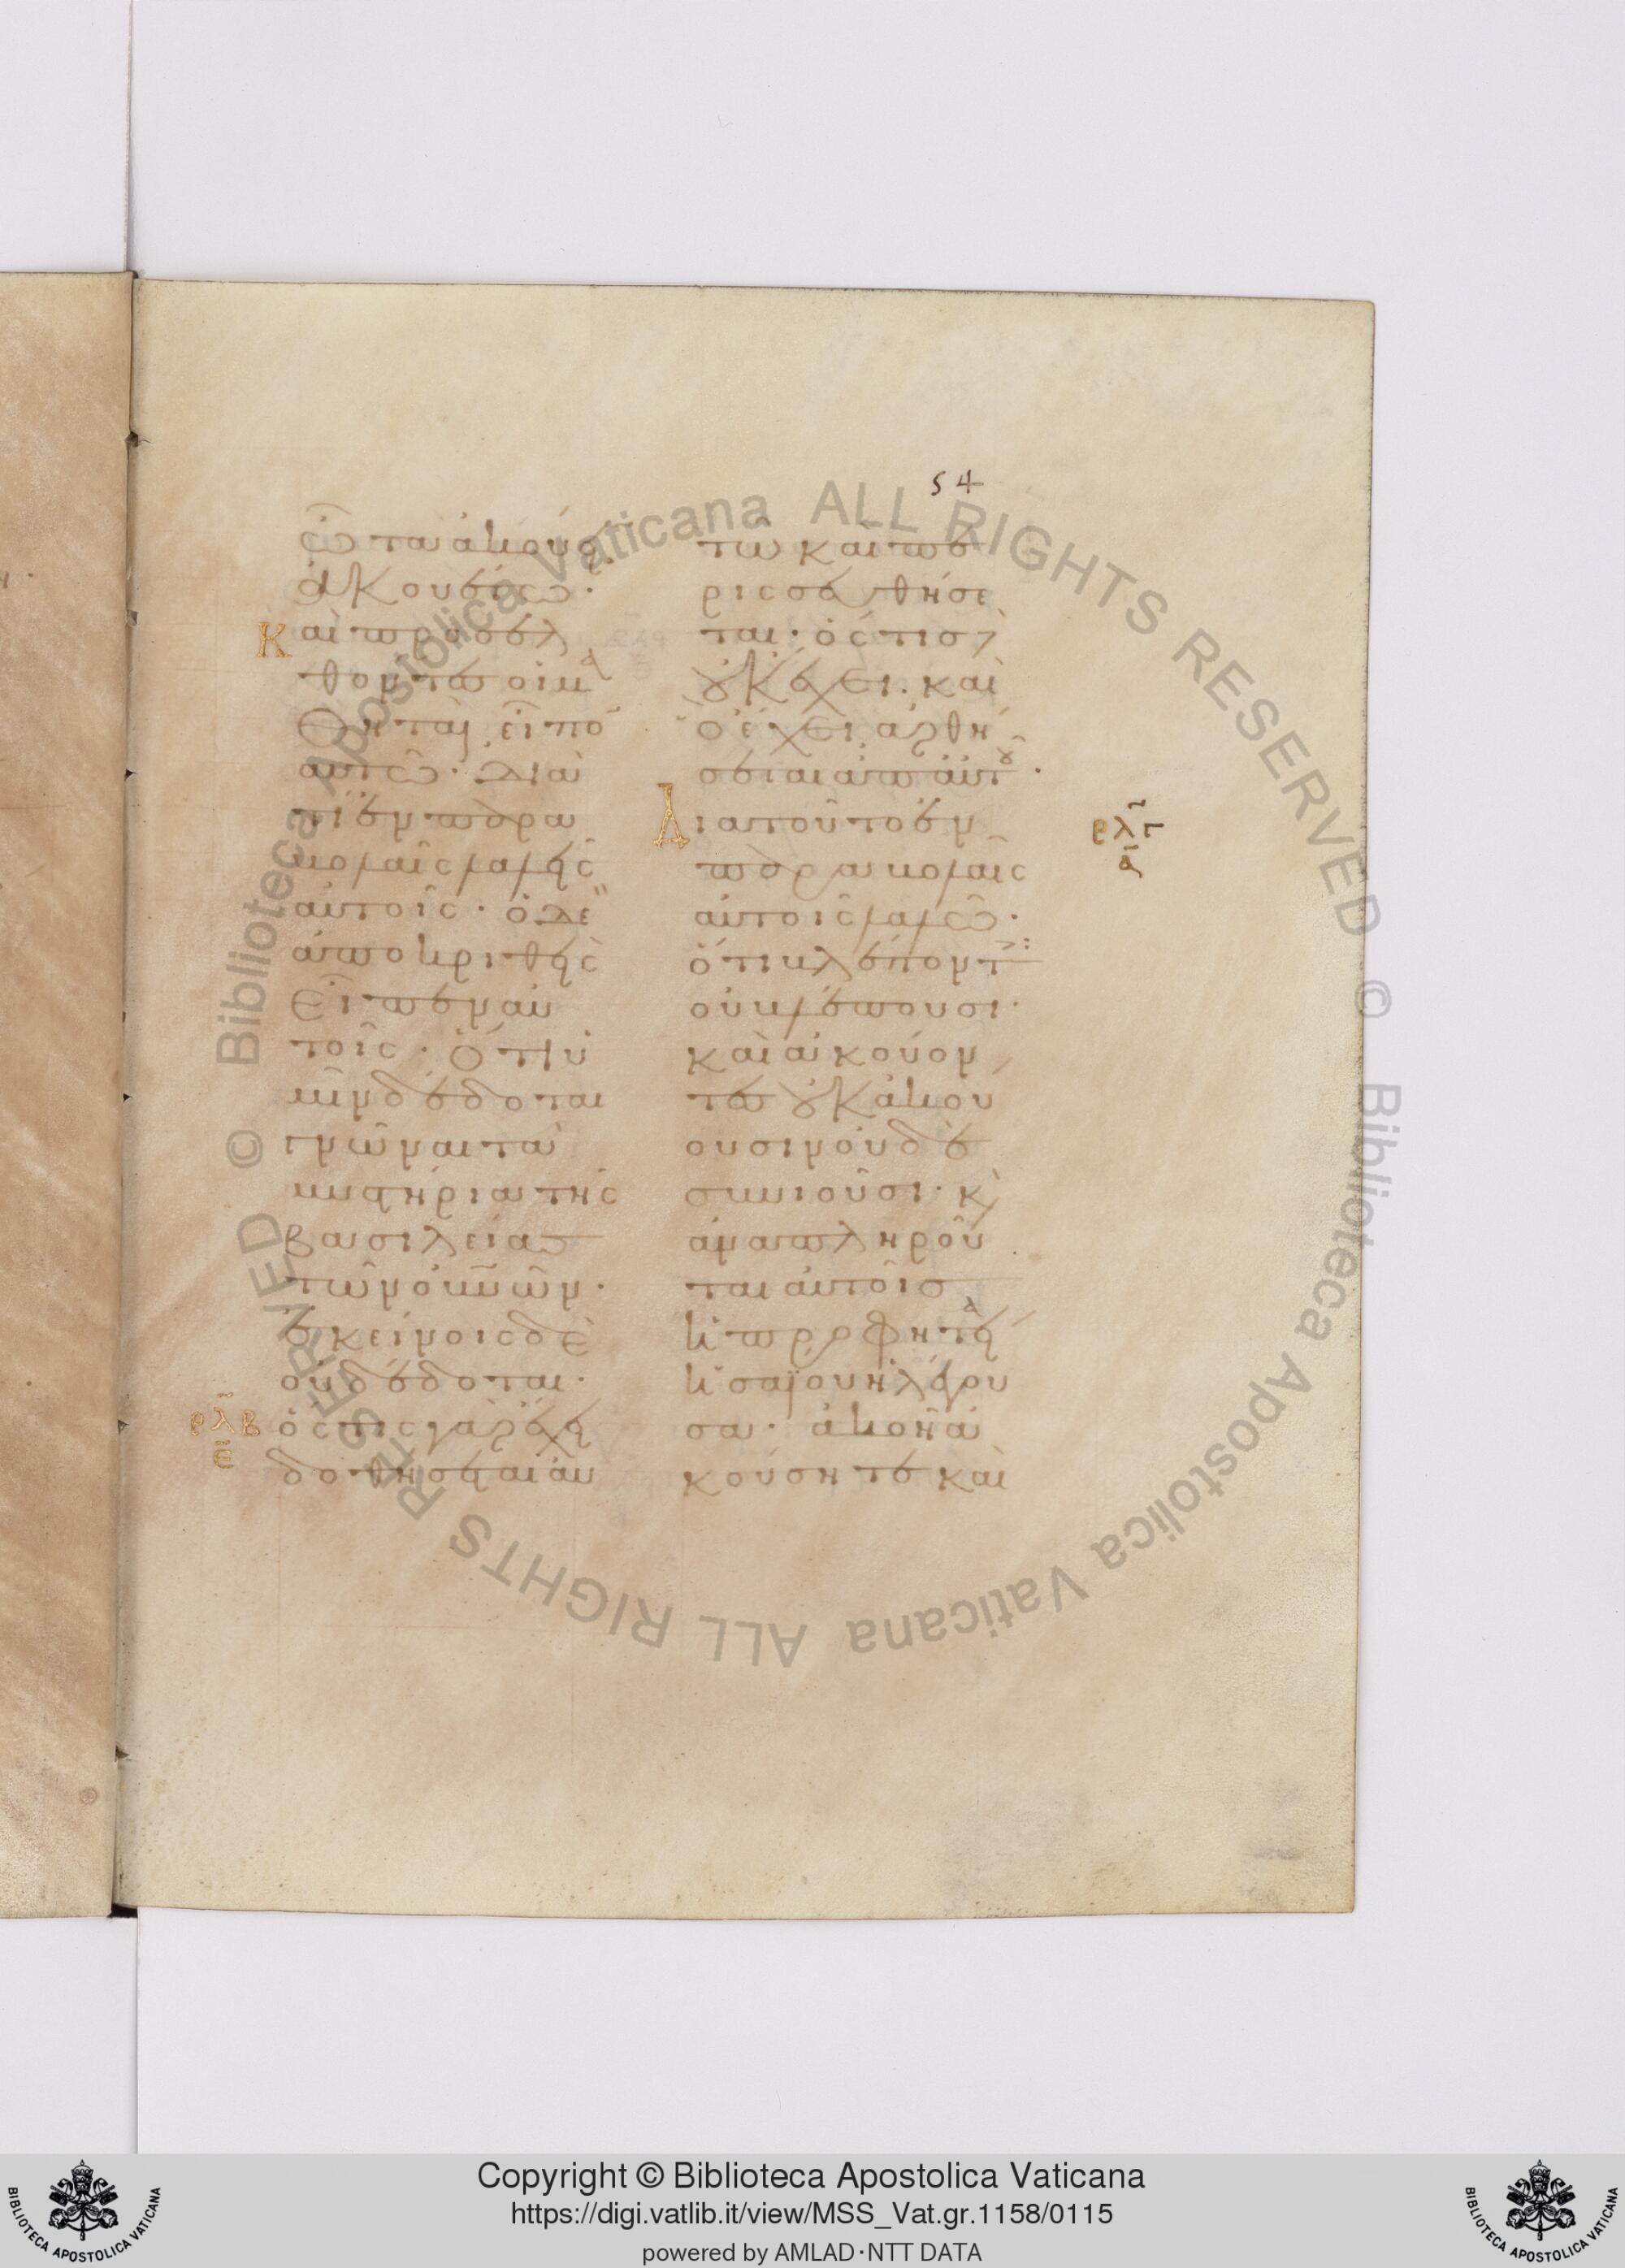 54
ὦτα ἀκούειν
ἀκουέτω·
Καὶ προσελ
θόντες οἱ μα
θηταὶ εἶπον
αὐτῶ· διὰ
τί ἐν παρα
βολαῖς λαλεῖς
αὐτοῖς· ὁ δὲ
ἀποκριθεὶς
εἶπεν αὐ
τοῖς· ὅτι ὑ
μῖν δέδοται
γνῶναι τὰ
μυστήρια τῆς
βασιλείας
τῶν οὐνῶν·
ἐκείνοις δὲ
οὐ δέδοται·
ρλβ
ε
ὅστις γὰρ ἔχει
δοθήσεται αὐ
τῶ καὶ πε
ρισσευθήσε
ται· ὅστις δὲ
οὐκ ἔχει· καὶ
ὃ ἔχει ἀρθή
σεται ἀπ' αὐτοῦ·
Διὰ τοῦτο ἐν
ρλγ
α
παραβολαῖς
αὐτοῖς λαλῶ·
ὅτι βλέποντες
οὐ βλέπουσι·
καὶ ἀκούον
τες οὐκ ἀκού
ουσιν οὐδὲ
συνιοῦσι· κὶ
ἀναπληροῦν
ται αὐτοῖς
ἡ προφητεία
ἡσαΐου ἡ λέγου
σα· ἀκοῆ ἀ
κούσητε καὶ
Copyright © Biblioteca Apostolica Vaticana
https://digi.vatlib.it/view/MSS_Vat.gr.1158/0115
powered by AMLAD·NTT DATA
BIBLIOTECA APOSTOLICA VATICANA
BIBLIOTECA APOSTOLICA VATICANA
© Biblioteca Apostolica Vaticana ALL RIGHTS RESERVED © Biblioteca Apostolica Vaticana ALL RIGHTS RESERVED